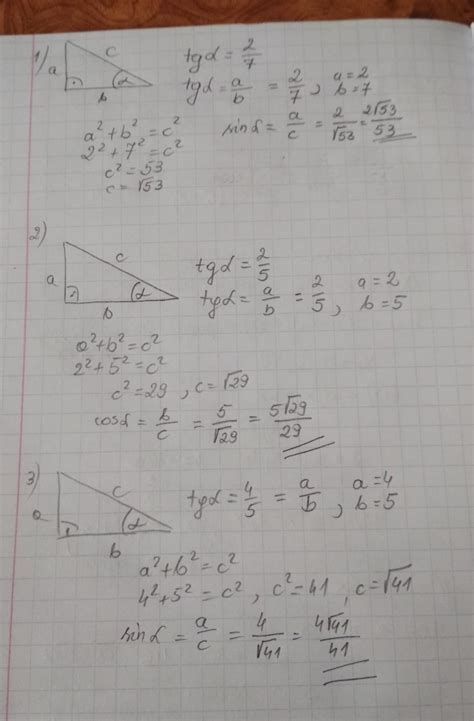 1) a c b α tgα = 2/7
tgα = a/b = 2/7, a=2 b=7
a² + b² = c² sinα = a/c = 2/√53 = 2√53/53
2² + 7² = c²
c² = 53
c = √53
2) a c b α tgα = 2/5
tgα = a/b = 2/5, a=2 b=5
a² + b² = c²
2² + 5² = c²
c² = 29, c = √29
cosα = b/c = 5/√29 = 5√29/29
3) a c b α tgα = 4/5 = a/b, a=4 b=5
a² + b² = c²
4² + 5² = c², c² = 41, c = √41
sinα = a/c = 4/√41 = 4√41/41